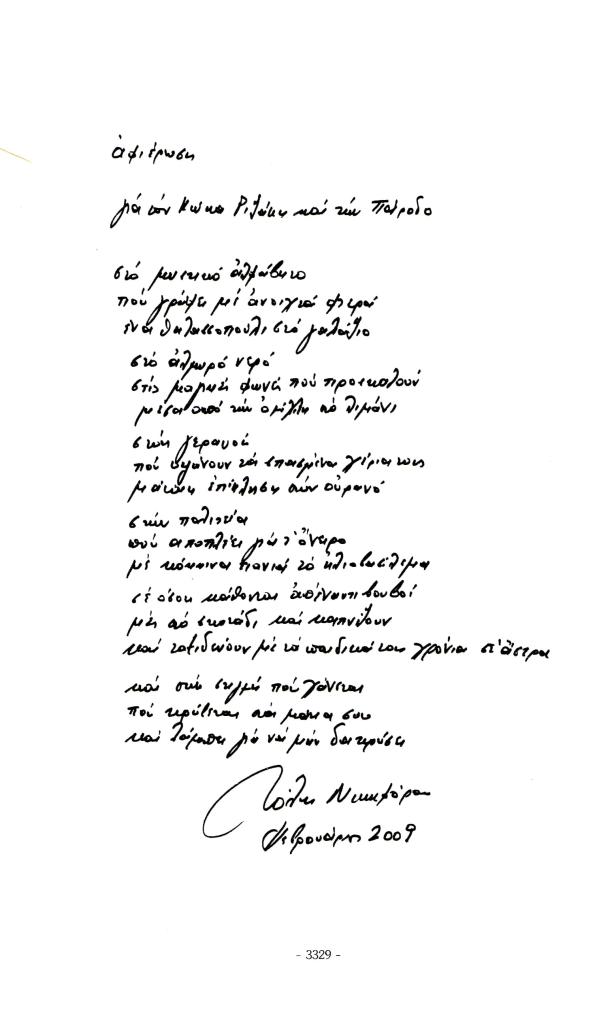 ἀφιέρωση
γιά τόν Κώστα Ριζάκη καί τήν Πάροδο
στό μυστικό ἀλφάβητο
πού γράφει μέ ἀνοιχτά φτερά
ἕνα θαλασσοπούλι στό γαλάζιο
στό ἁλμυρό νερό
στίς μακρινές φωνές πού προσκαλοῦν
μέσα ἀπό τήν ὁμίχλη τό λιμάνι
στούς γερανούς
πού ὑψώνουν τά σπασμένα χέρια τους
μάταιη ἐπίκληση στόν οὐρανό
στήν πολιτεία
πού ἀποπλέει γιά τ' ὄνειρο
μέ κόκκινα πανιά τό ἡλιοβασίλεμα
σέ ὅσους κάθονται ἀπέναντι βουβοί
μές στό σκοτάδι καί καπνίζουν
καί ταξιδεύουν μέ τά παιδικά τους χρόνια στ' ἄστρα
καί στή στιγμή πού χάνεται
πού κρύβεται στά μάτια σου
καί λάμπει γιά νά μήν δακρύσει
Τόλης Νικηφόρου
Φεβρουάριος 2009
- 3329 -